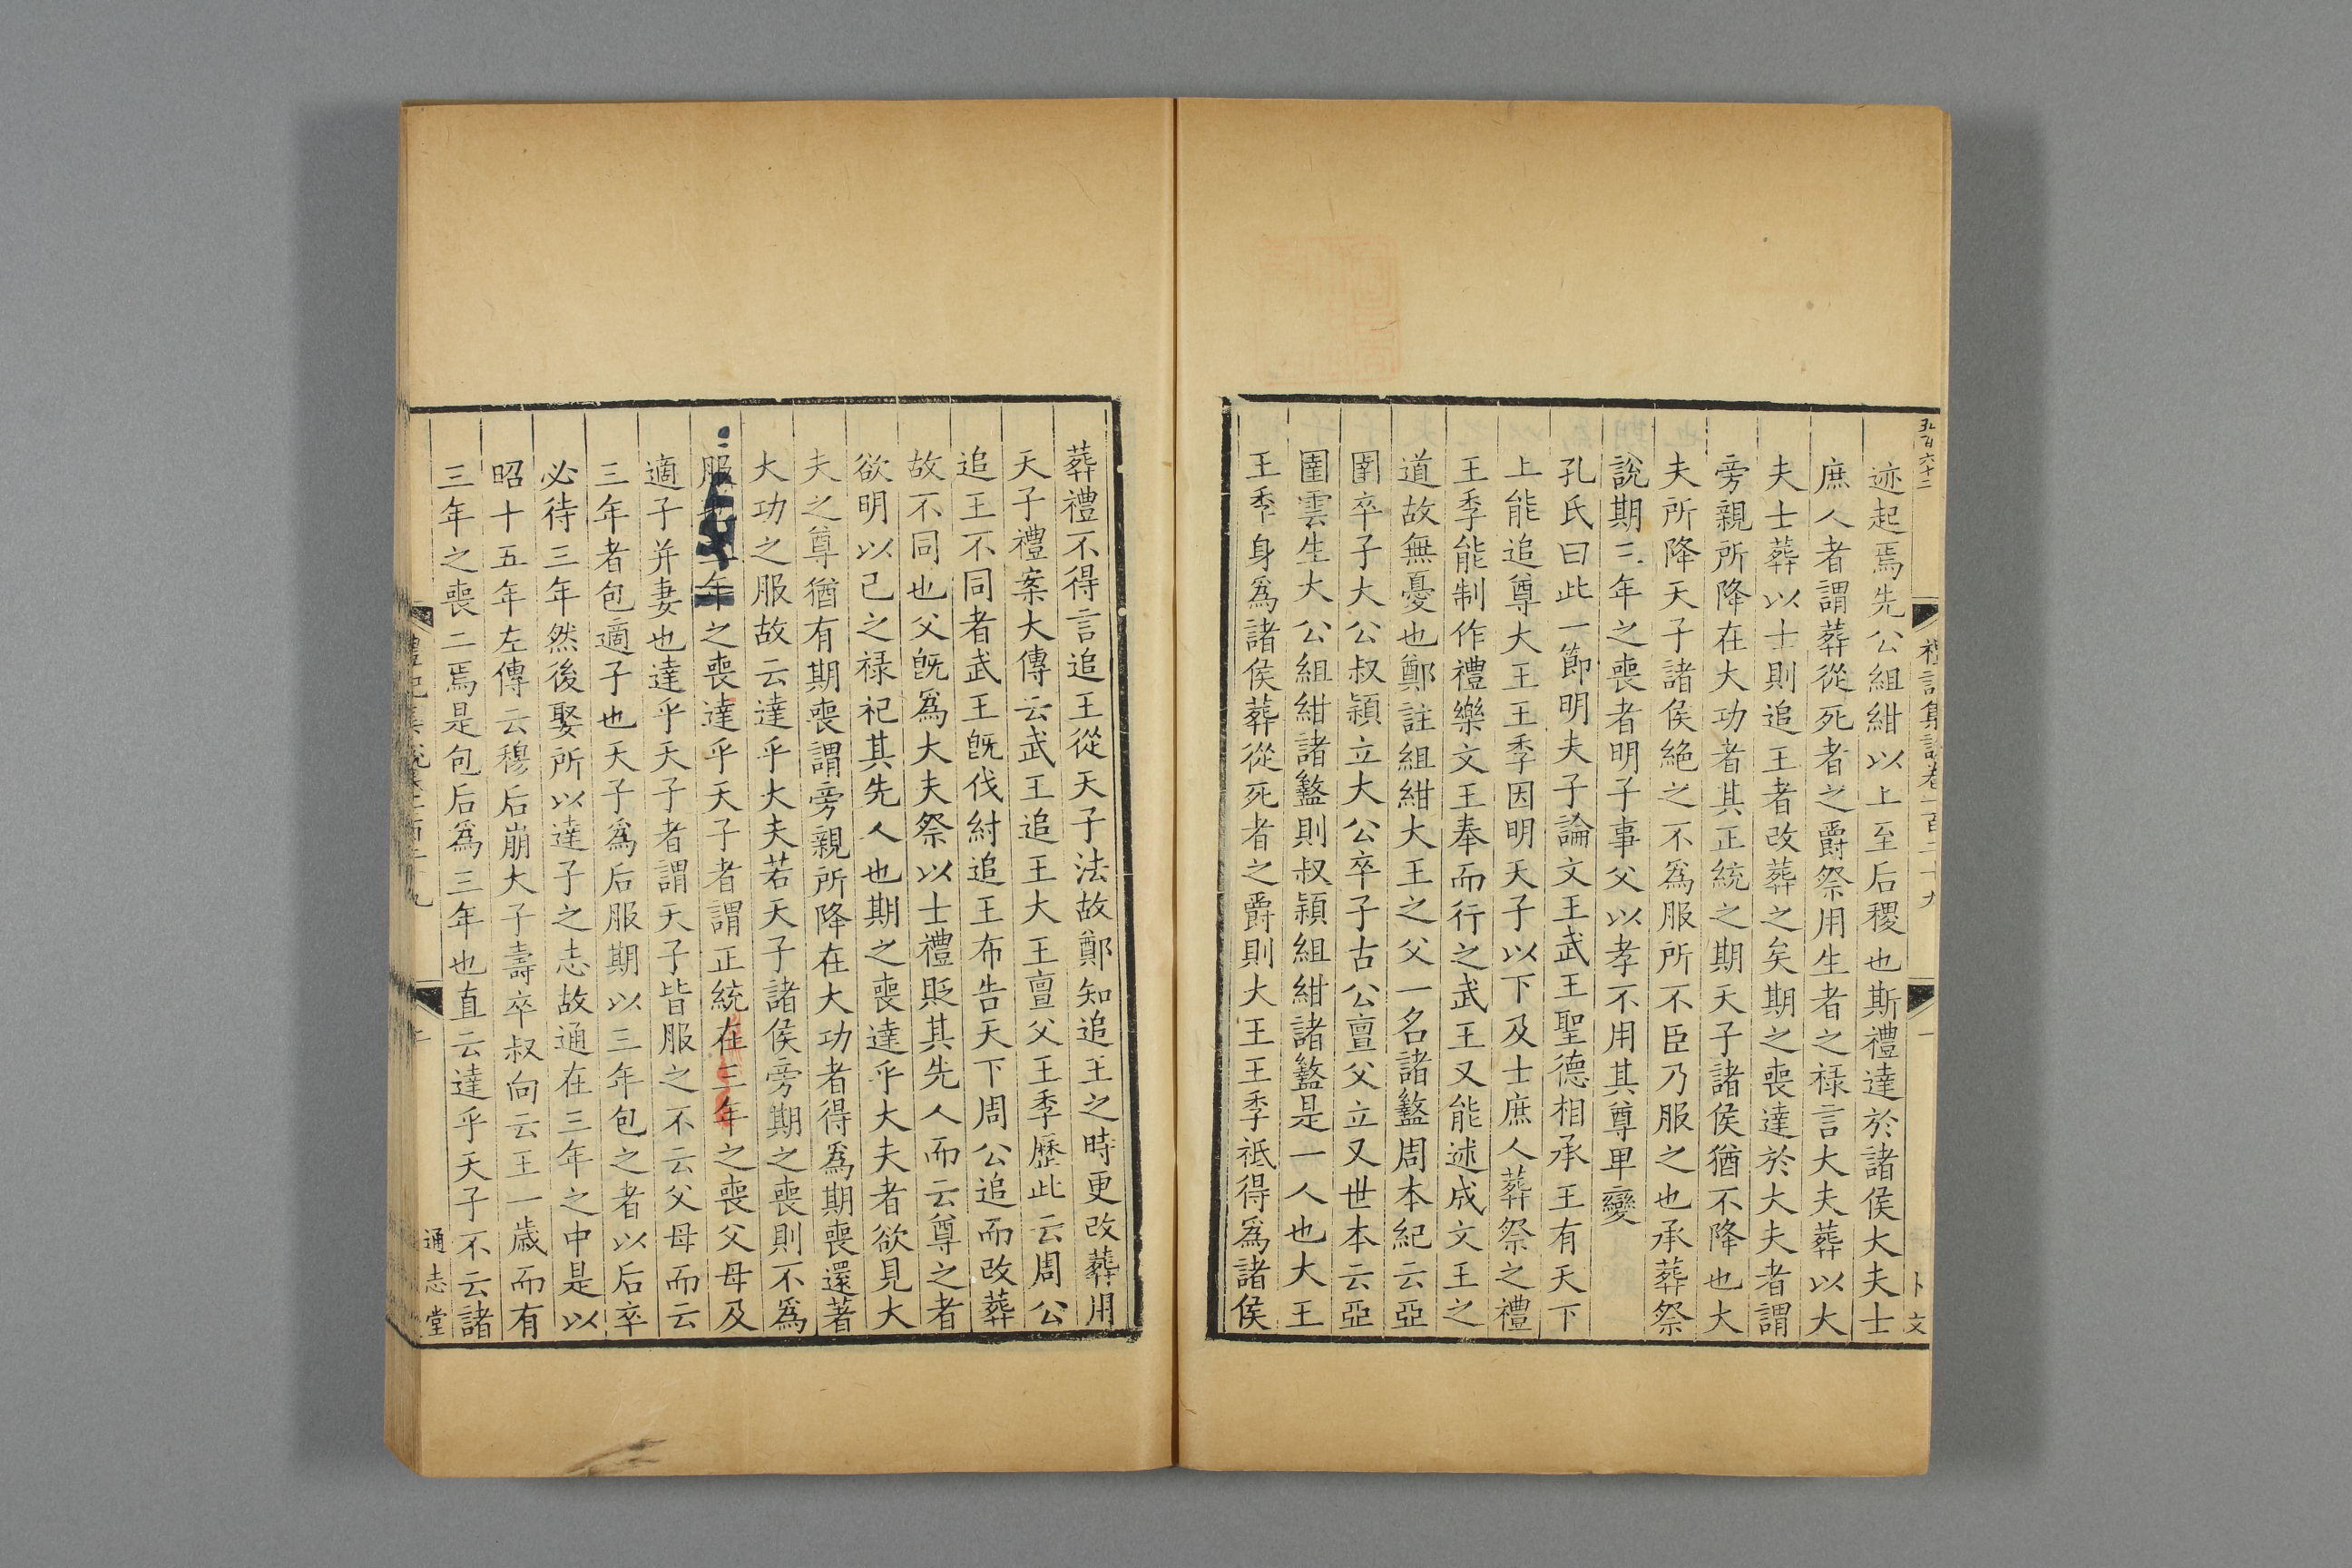 五百六十二
禮記集說卷一百二十九
一
卜文
迹起焉先公組紺以上至后稷也斯禮達於諸侯大夫士
庶人者謂葬從死者之爵祭用生者之禄言大夫葬以大
夫士葬以士則追王者改葬之矣期之喪達於大夫者謂
旁親所降在大功者其正統之期天子諸侯猶不降也大
夫所降天子諸侯絶之不爲服所不臣乃服之也承葬祭
說期三年之喪者明子事父以孝不用其尊卑變
孔氏曰此一節明夫子論文王武王聖德相承王有天下
上能追尊大王王季因明天子以下及士庶人葬祭之禮
王季能制作禮樂文王奉而行之武王又能述成文王之
道故無憂也鄭註組紺大王之父一名諸盩周本紀云亞
圉卒子大公叔穎立大公卒子古公亶父立又世本云亞
圉雲生大公組紺諸盩則叔穎組紺諸盩是一人也大王
王季身爲諸侯葬從死者之爵則大王王季祗得爲諸侯
葬禮不得言追王從天子法故鄭知追王之時更改葬用
天子禮案大傳云武王追王大王亶父王季歷此云周公
追王不同者武王旣伐紂追王布告天下周公追而改葬
故不同也父旣爲大夫祭以士禮貶其先人而云尊之者
欲明以己之禄祀其先人也期之喪達乎大夫者欲見大
夫之尊猶有期喪謂旁親所降在大功者得爲期喪還著
大功之服故云達乎大夫若天子諸侯旁期之喪則不爲
服年之喪達乎天子者謂正統在三年之喪父母及
適子并妻也達乎天子者謂天子皆服之不云父母而云
三年者包適子也天子爲后服期以三年包之者以后卒
必待三年然後娶所以達子之志故通在三年之中是以
昭十五年左傳云穆后崩大子壽卒叔向云王一歲而有
三年之喪二焉是包后爲三年也直云達乎天子不云諸
通志堂